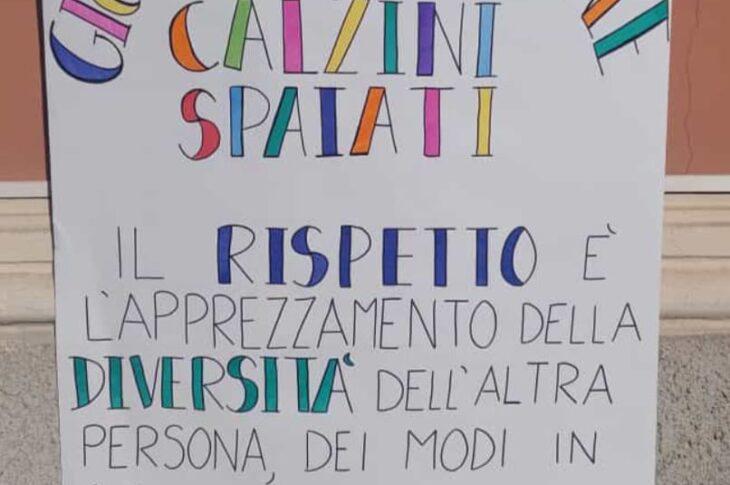 CALZINI
SPAIATI
IL RISPETTO È
L'APPREZZAMENTO DELLA
DIVERSITÀ DELL'ALTRA
PERSONA, DEI MODI IN